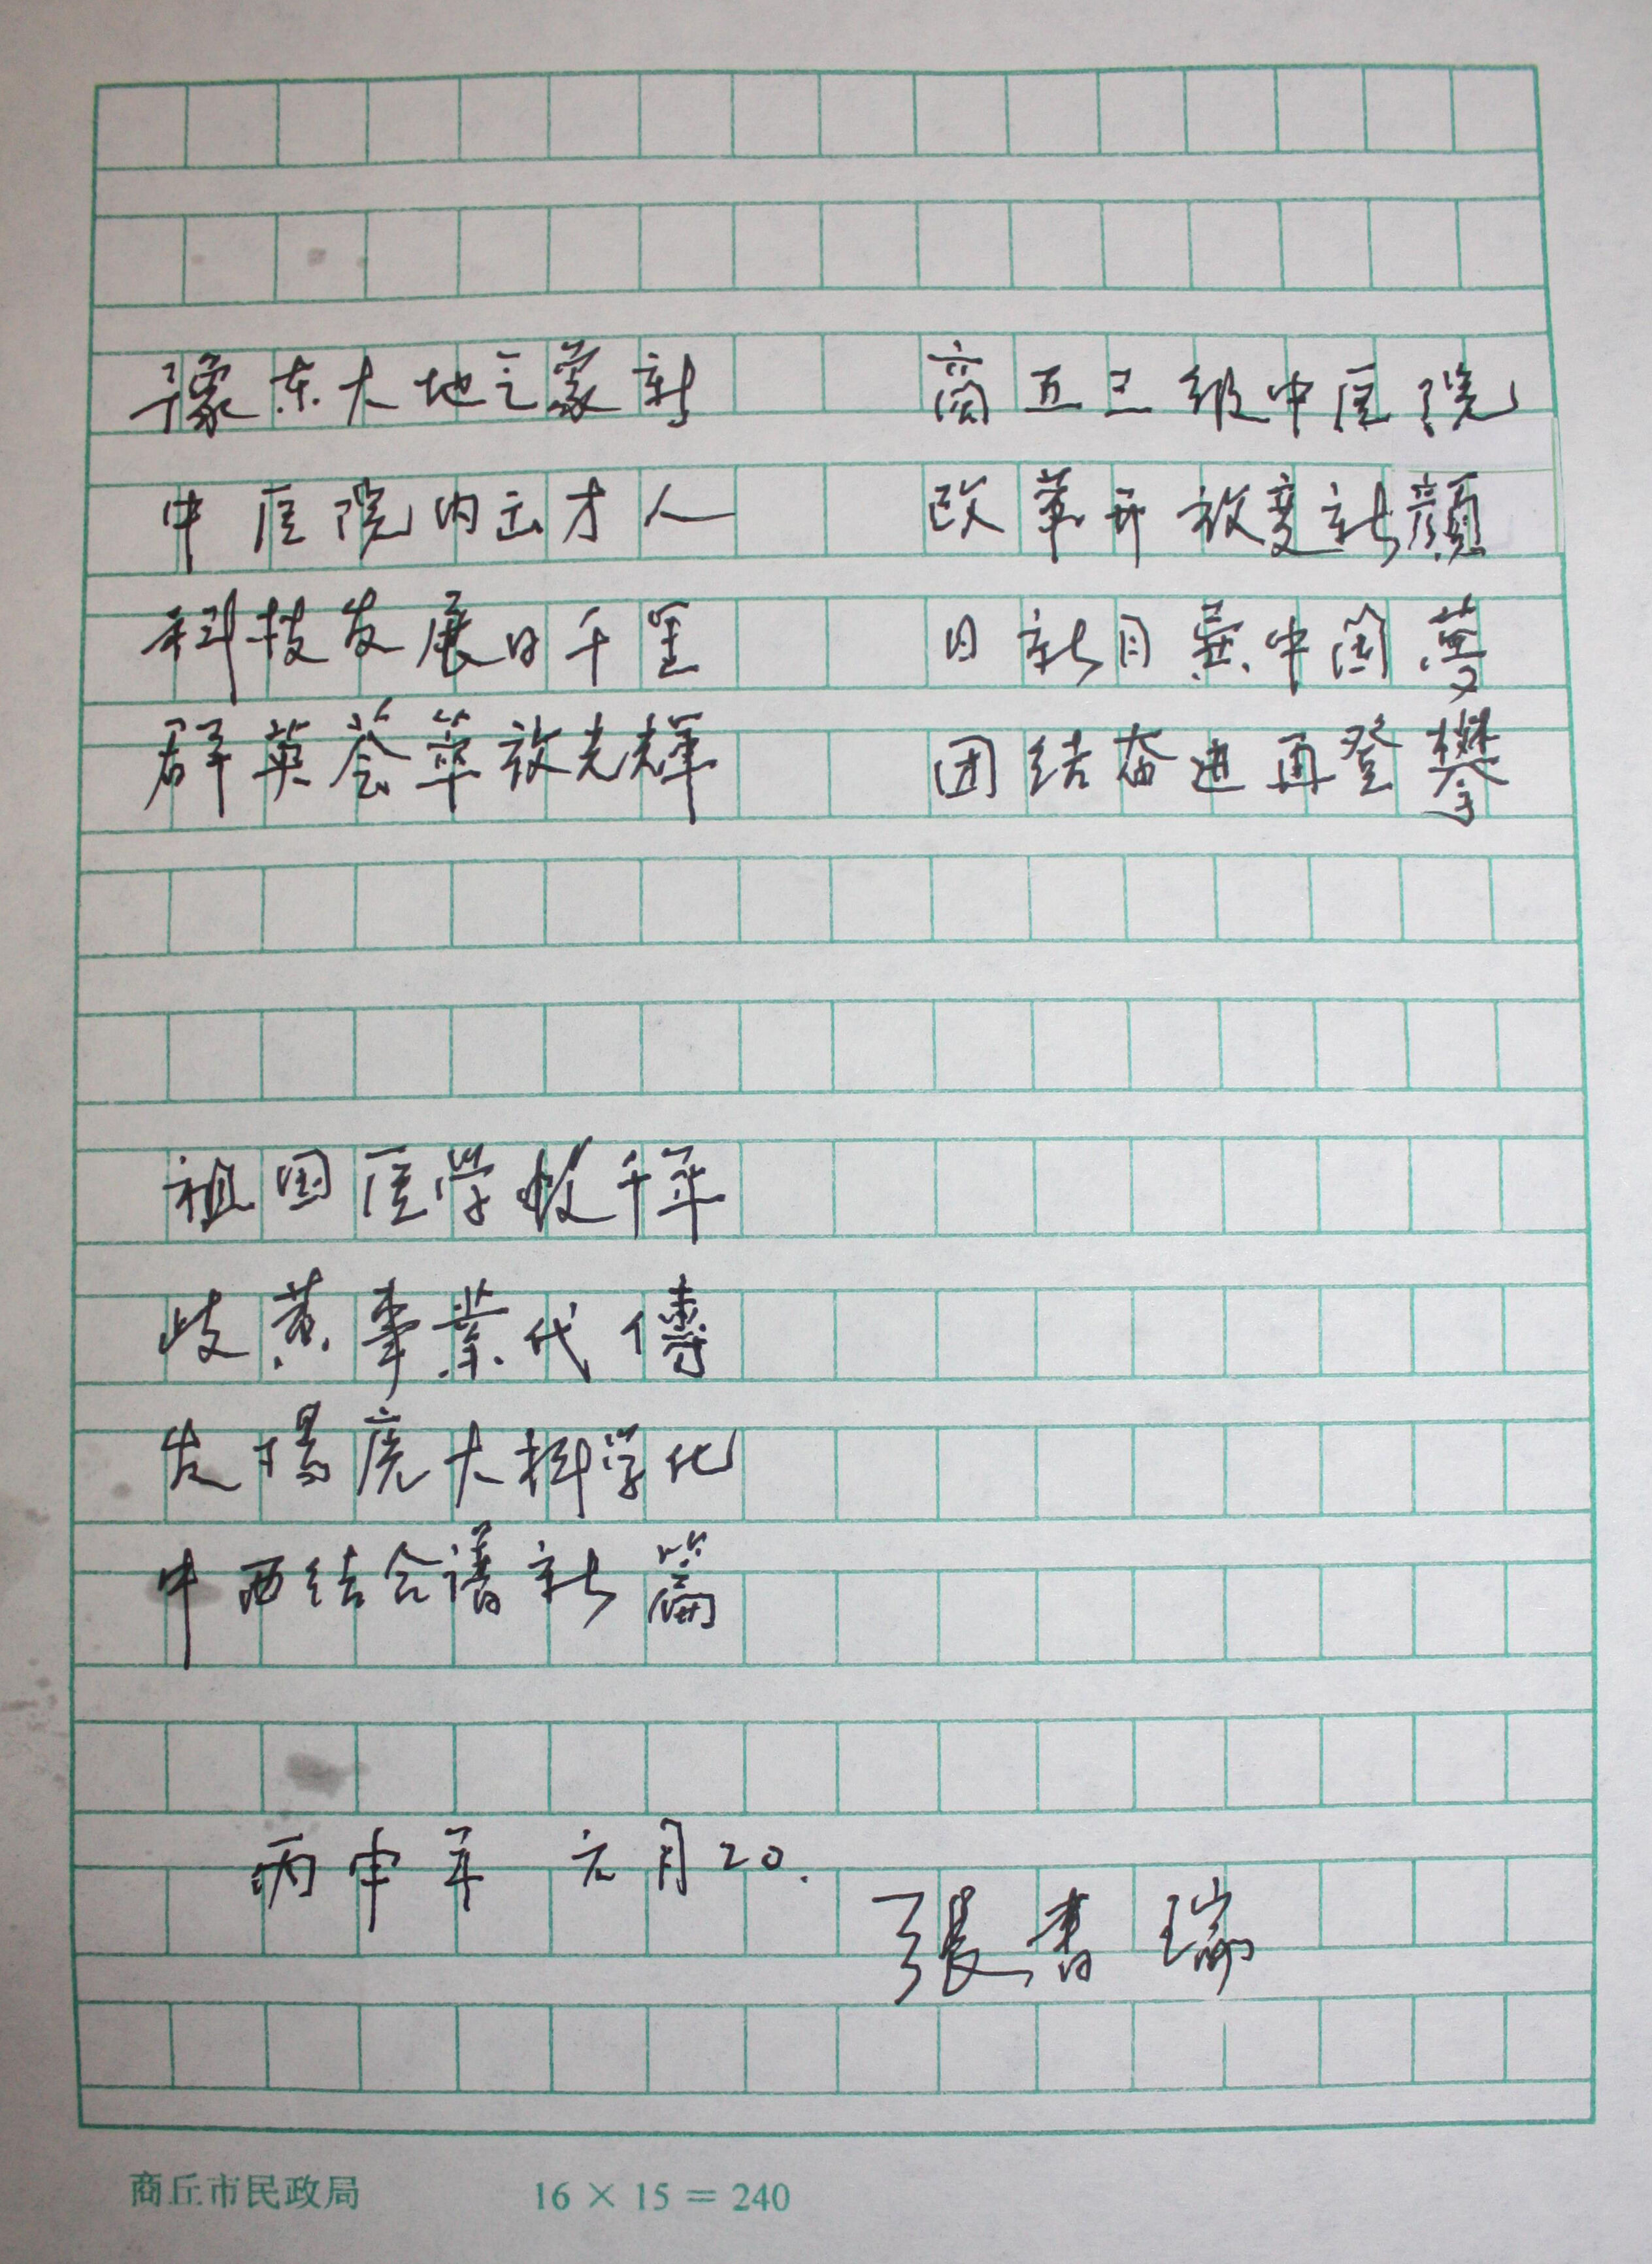 豫东大地气象新 商丘三级中医院
中医院内出才人 改革开放变新颜
科技发展日千里 日新月異中国夢
群英荟萃放光輝 团结奋进再登攀
祖国医学数千年
岐黄事業代傳
发揚廣大科学化
中西结合谱新篇
丙申年 元月20.
張書瑞
商丘市民政局 16 × 15 = 240